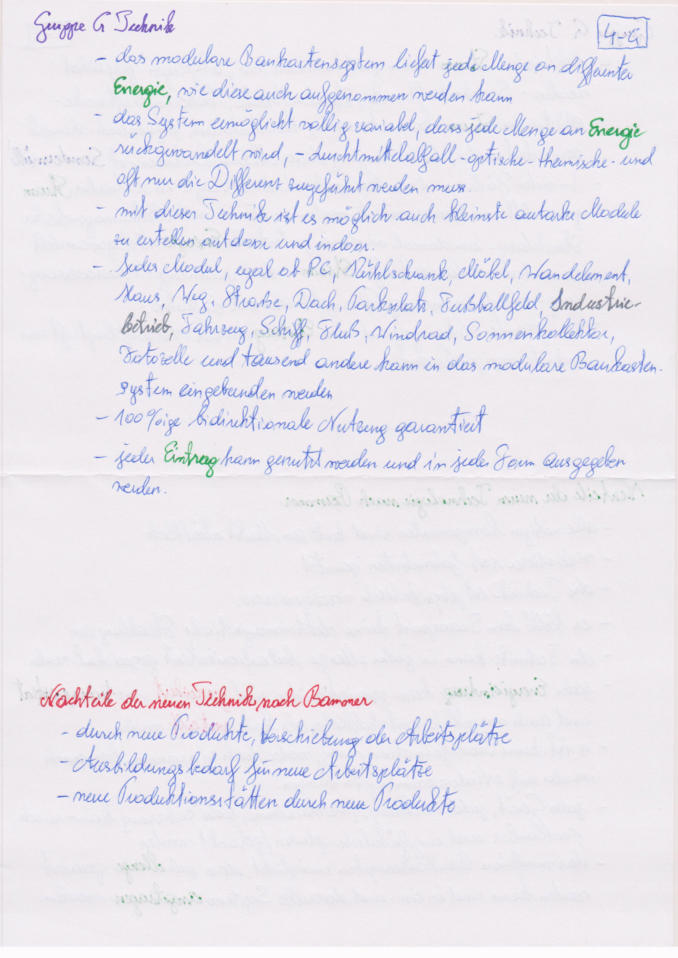 Gruppe G Technik
4-G
- das modulare Baukastensystem liefert jede Menge an differenter
Energie, wie diese auch aufgenommen werden kann
- das System ermöglicht völlig variabel, dass jede Menge an Energie
rückgewandelt wird, - - optische - thermische - und
oft nur die Different zugeführt werden muss
- mit dieser Technik ist es möglich auch kleinste autarke Module
zu erstellen outdoor und indoor.
- Jedes Modul, egal ob PC, Kühlschrank, Möbel, Wandelement,
Haus, Weg, Straße, Dach, Parkplatz, Fußballfeld, Industrie-
betrieb, Fahrzeug, Schiff, Fluß, Windrad, Sonnenkollektor,
Fotozelle und tausend andere kann in das modulare Baukasten-
system eingebunden werden
- 100%ige bidirektionale Nutzung garantiert
- jeder Eintrag kann genutzt werden und in jeder Form ausgegeben
werden.
Nachteile der neuen Technik nach Bammer
- durch neue Produkte, Verschiebung der Arbeitsplätze
- Ausbildungsbedarf für neue Arbeitsplätze
- neue Produktionsstätten durch neue Produkte